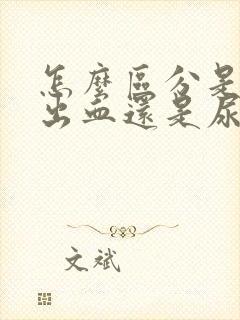 怎麼區分是
出血還是尿
文斌